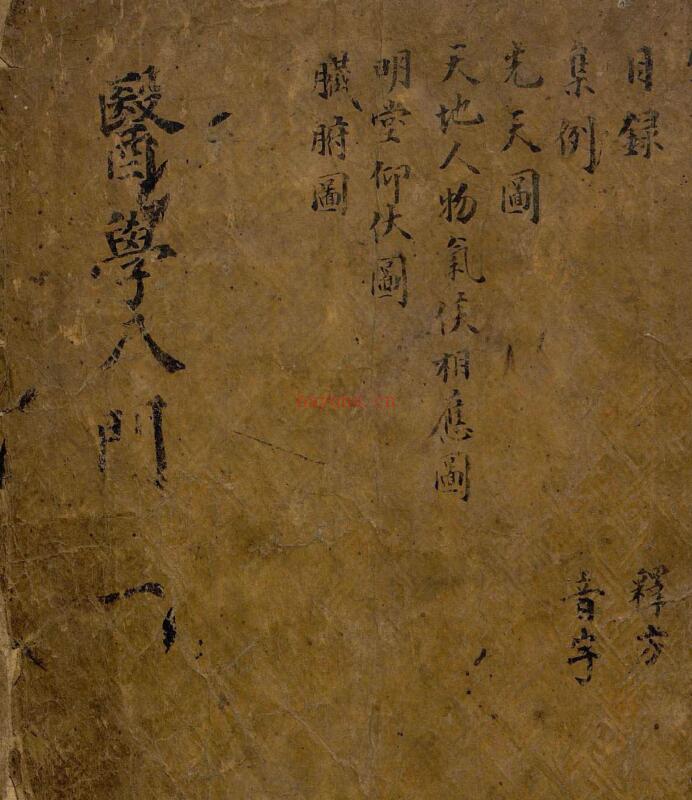 目録
集例
先天圖
天地人物氣候相應圖
明堂仰伏圖
臓腑圖
醫學入門 一
釋方
音字